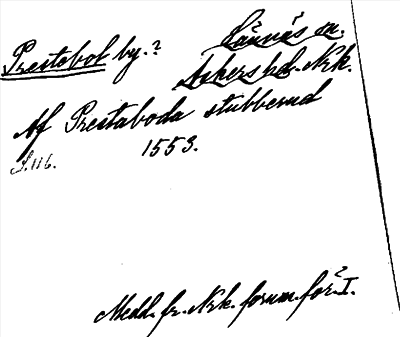 Prestobol by.?
Lännäs sn.
Askers hd. Nrk.
Af Prestaboda stubberud
S. 116. 1553.
Medd. fr. Nrk. fornm. för. I.